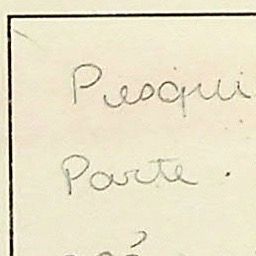 Pesqui
Parte.